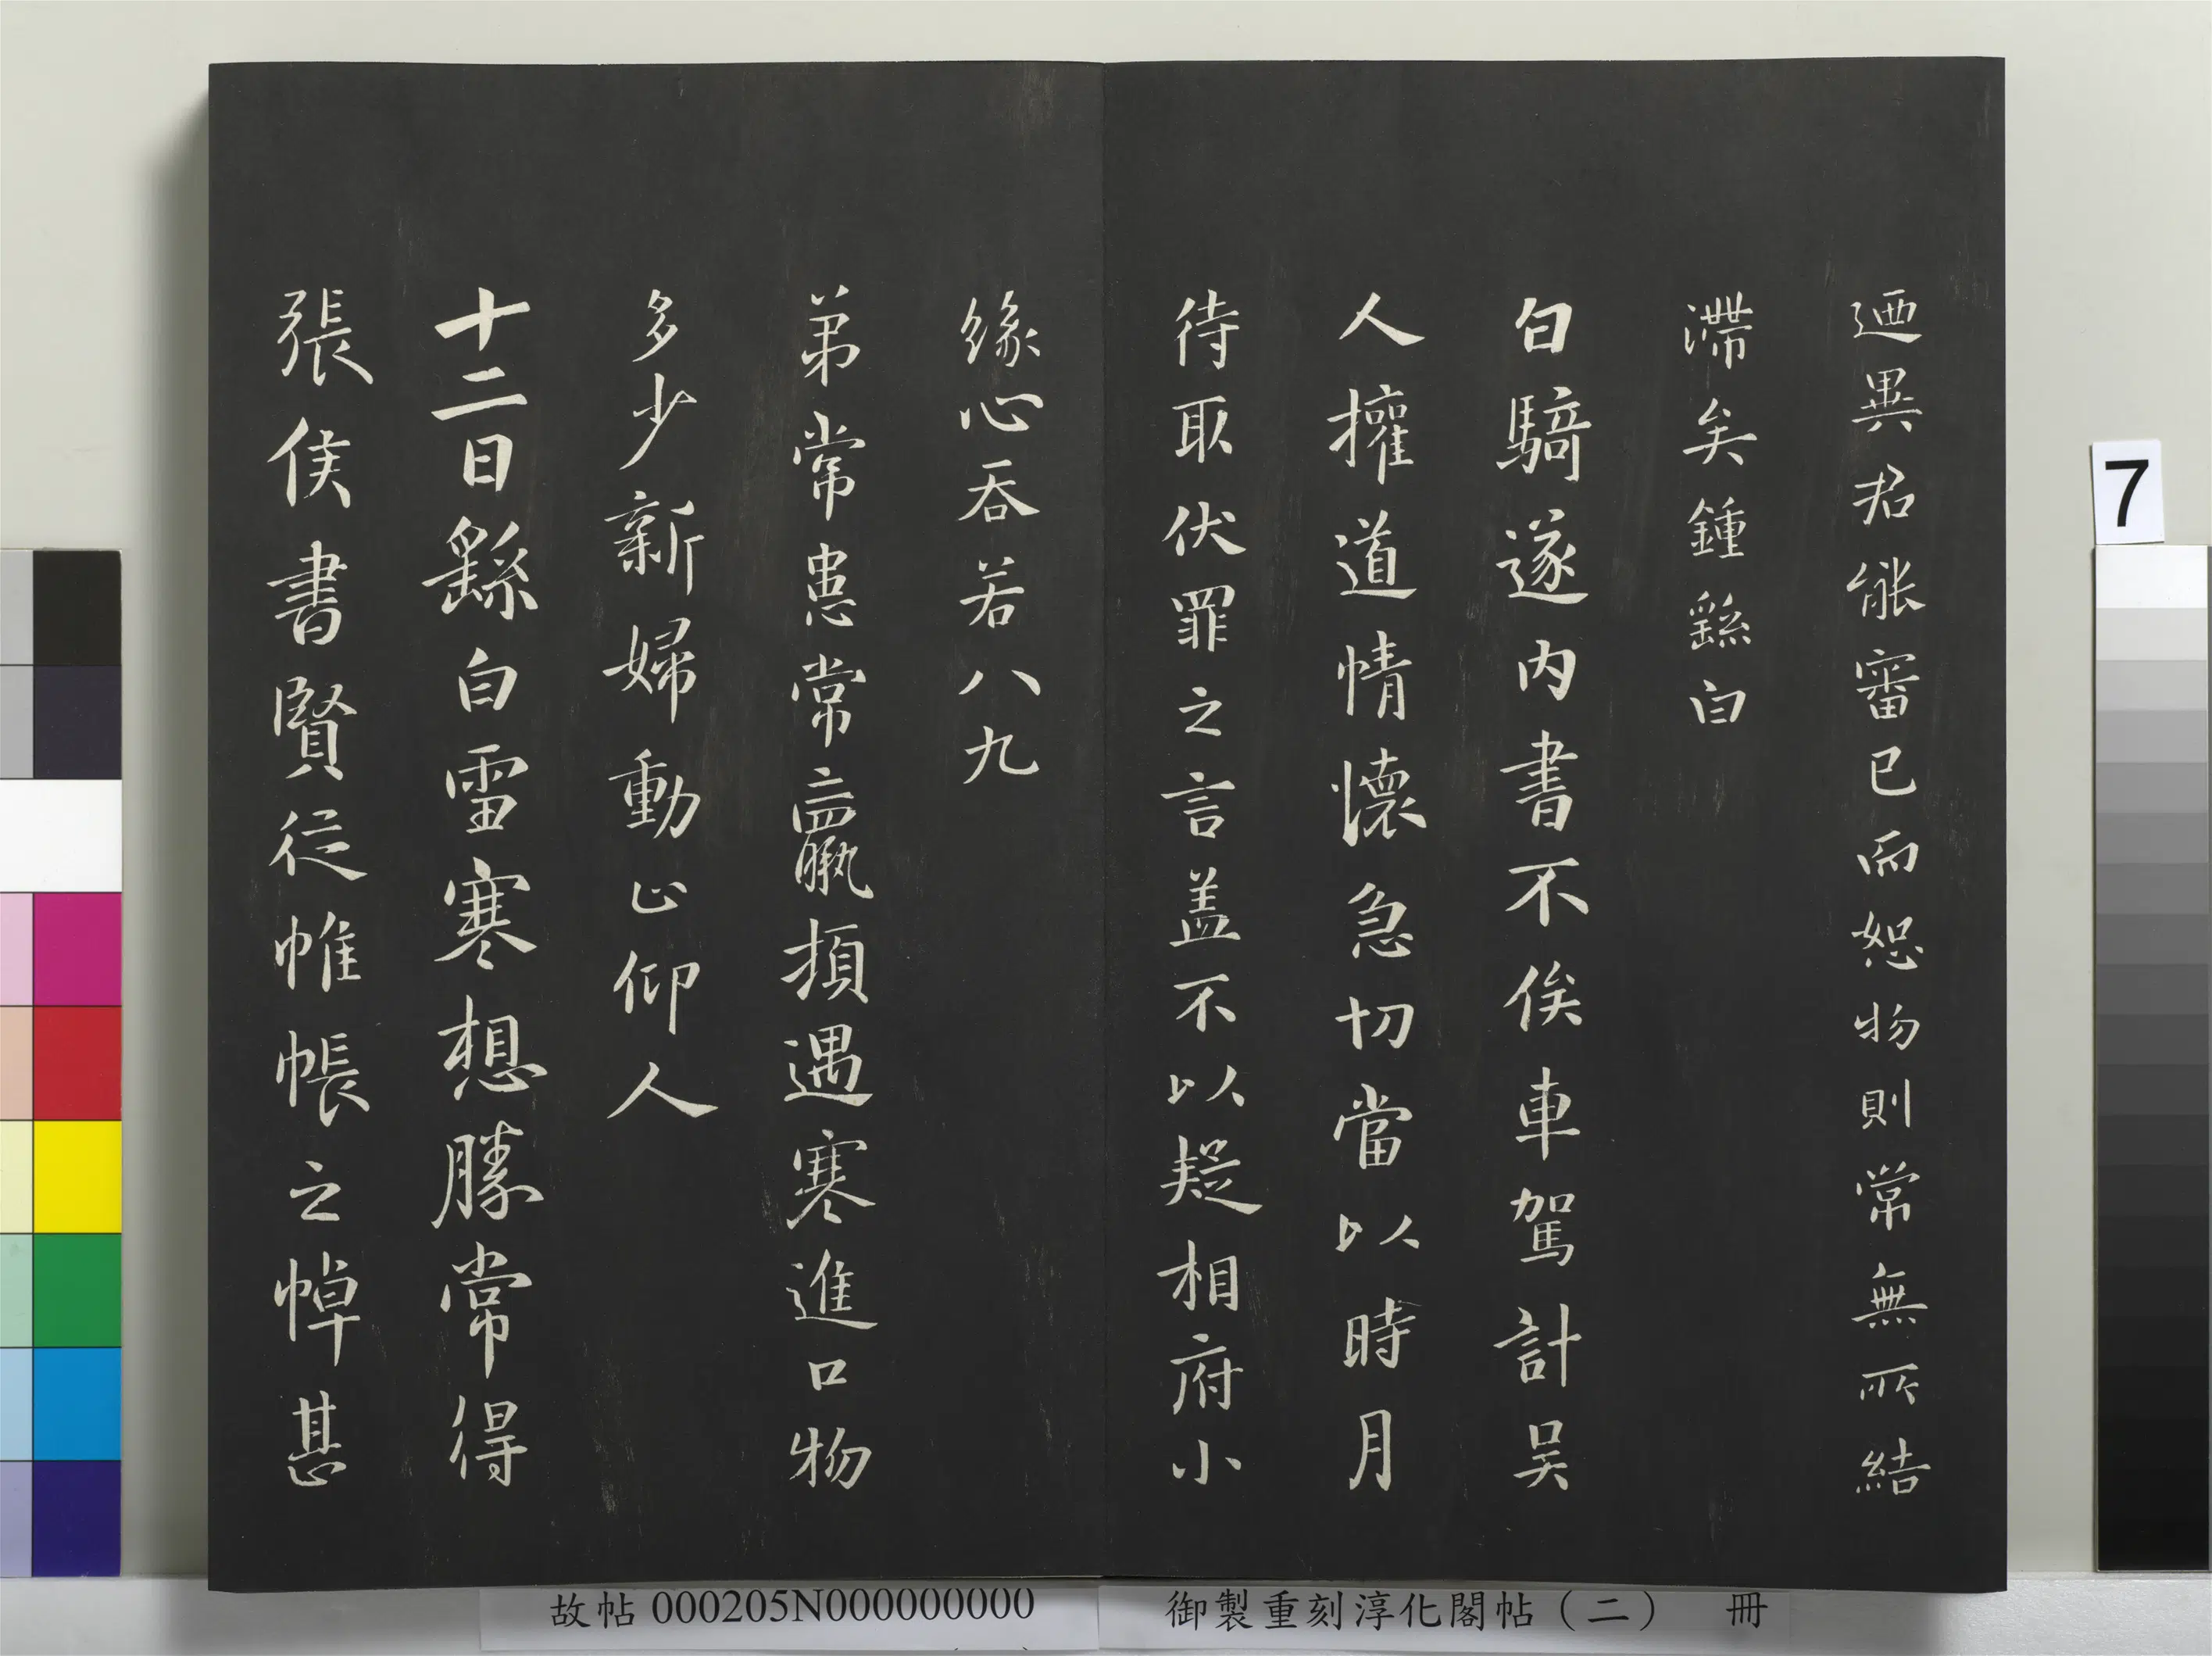 迺異君能審已而恕物則常無所結
滯矣鍾繇白
白騎遂内書不俟車駕計吴
人權道情懷急切當以時月
待取伏罪之言盖不以疑相府小
緣心吞若八九
弟常患常羸頓遇寒進口物
多少新婦動止仰人
十二日繇白雪寒想勝常得
張侯書賢從帷帳之悼甚
故帖 000205N000000000
御製重刻淳化閣帖（二） 冊
7